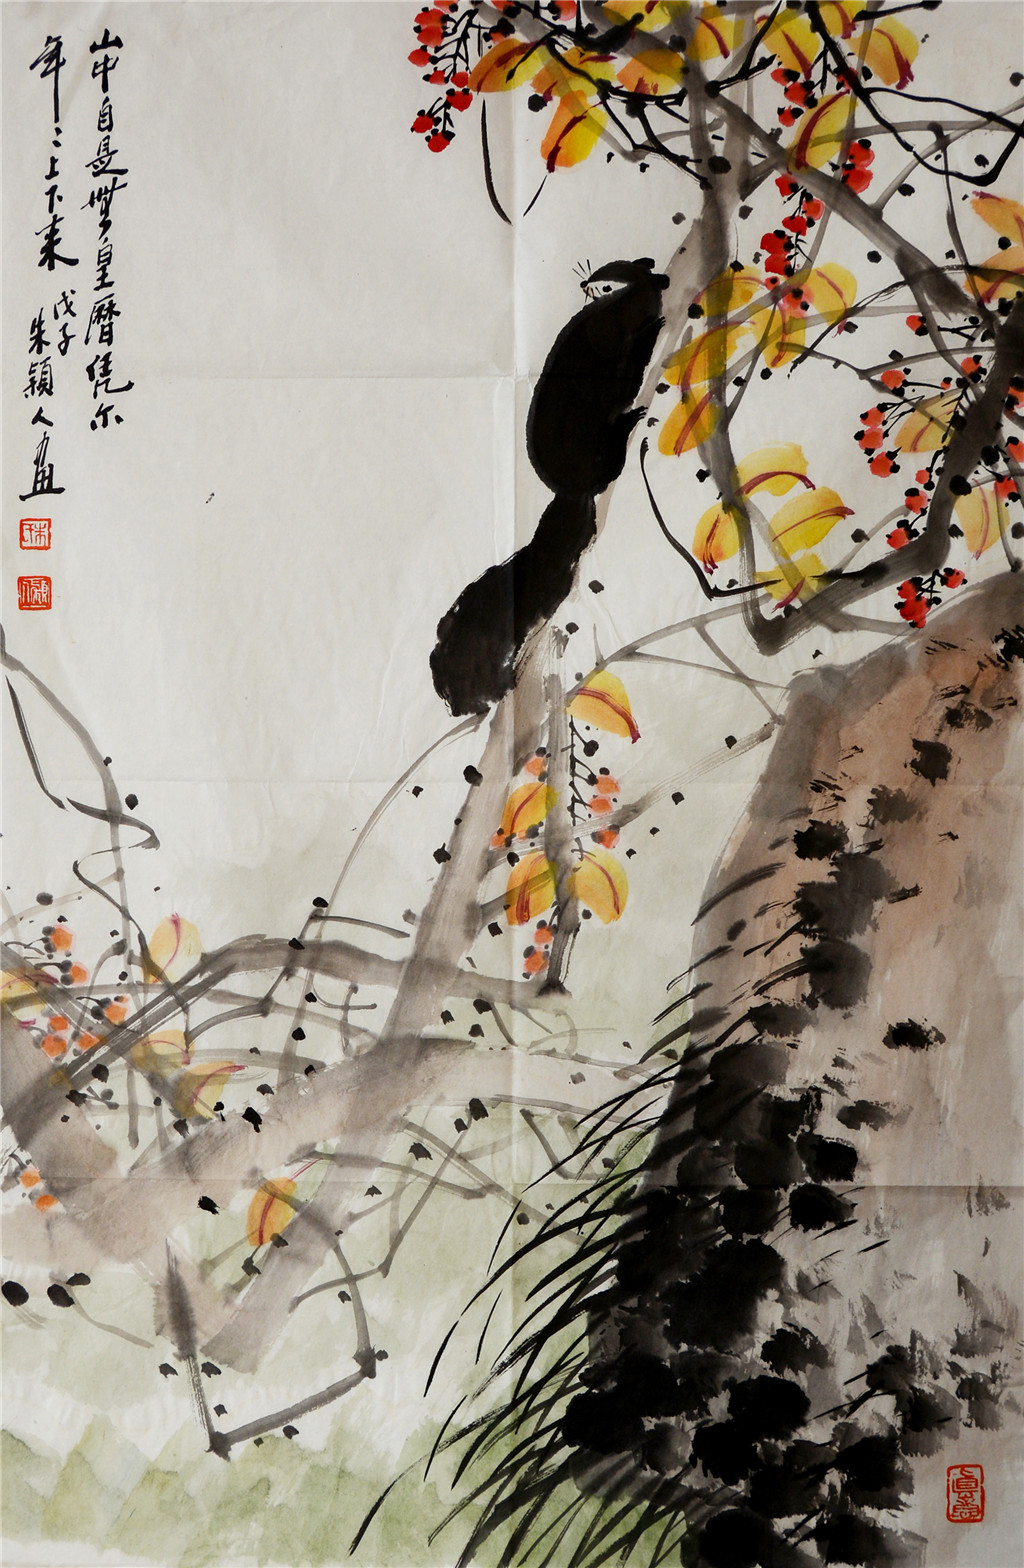 山中自是無皇曆凭尔
年〻上下来
戊子
朱穎人画